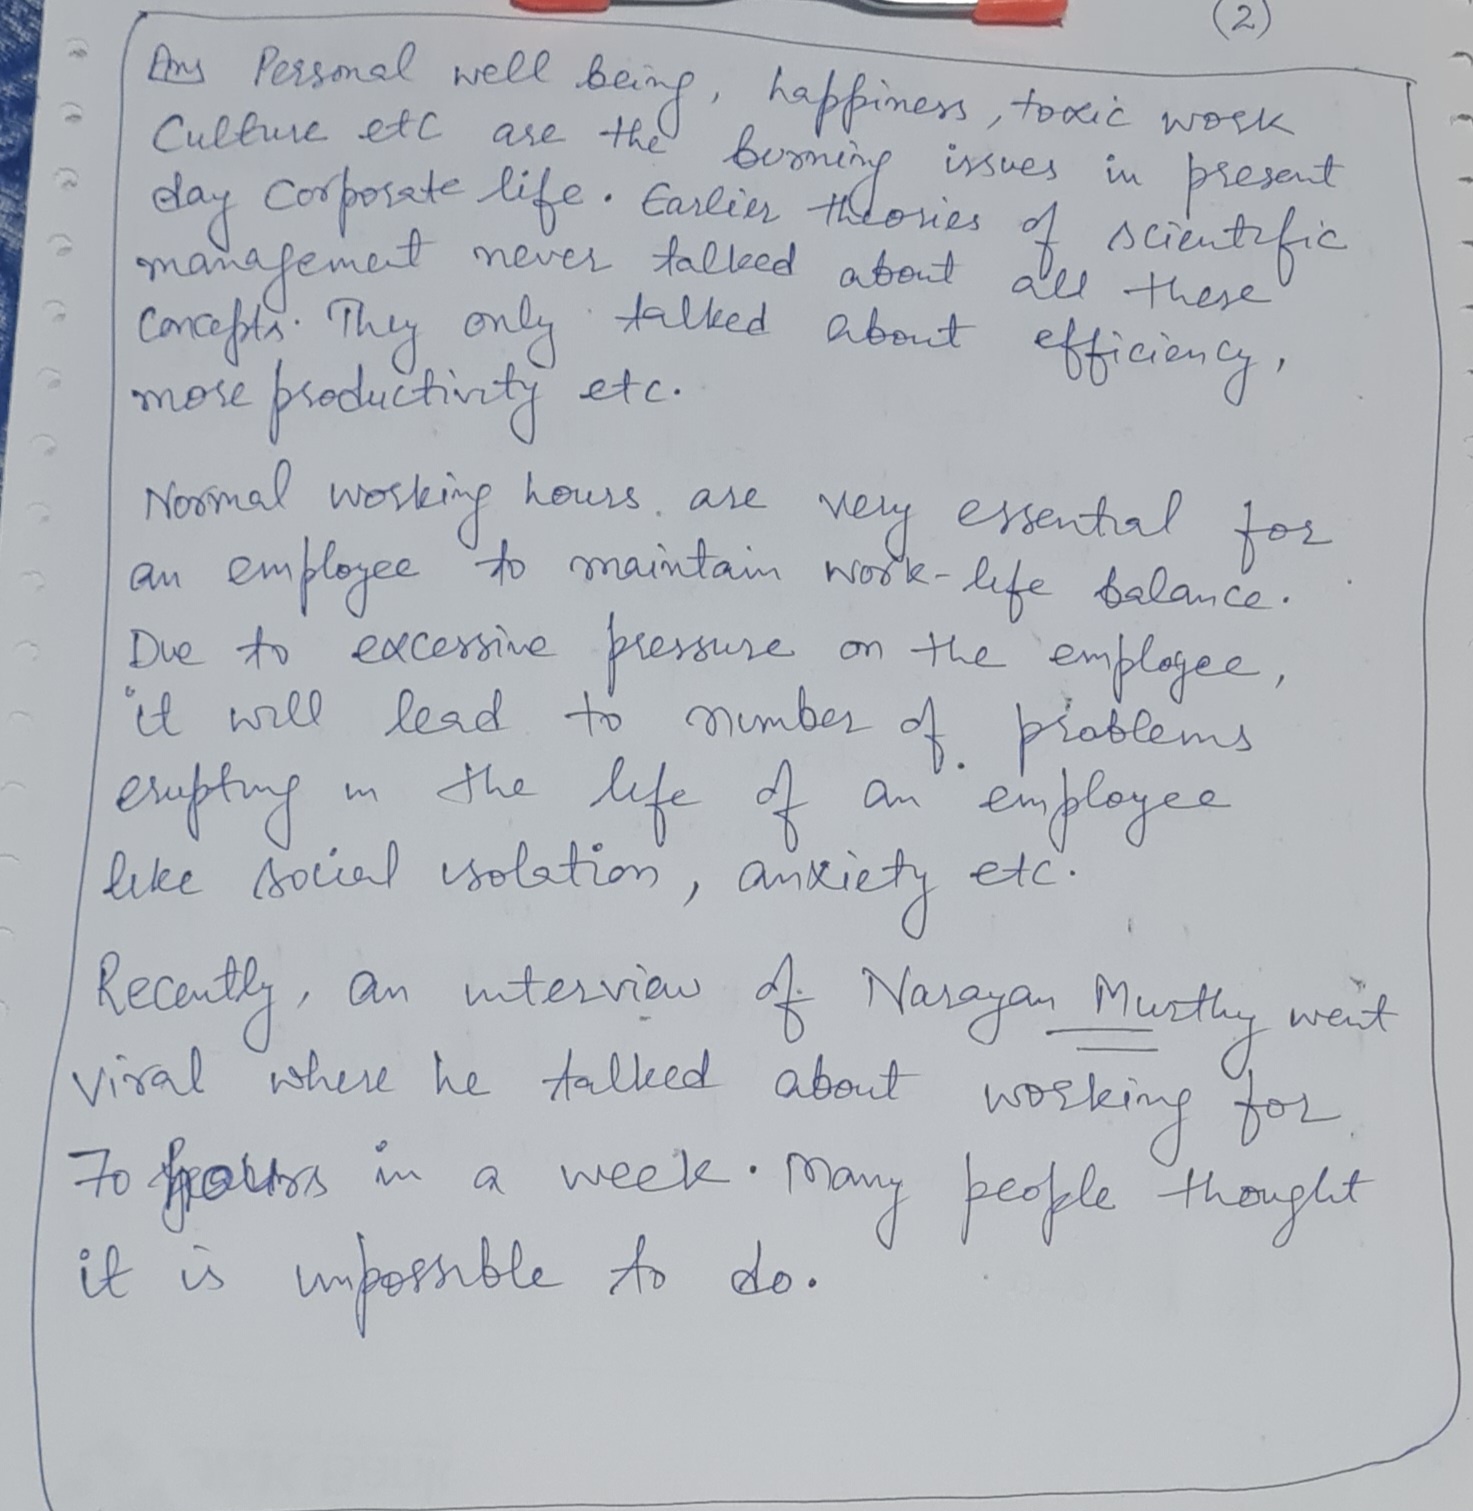 (2)
Ans Personal well being, happiness, toxic work
Culture etc are the burning issues in present
day Corporate life. Earlier theories of scientific
management never talked about all these
Concepts. They only talked about efficiency,
more productivity etc.
Normal working hours are very essential for
an employee to maintain work-life balance.
Due to excessive pressure on the employee,
it will lead to number of problems
erupting in the life of an employee
like social isolation, anxiety etc.
Recently, an interview of Narayan Murthy went
viral where he talked about working for
70 hours in a week. Many people thought
it is impossible to do.